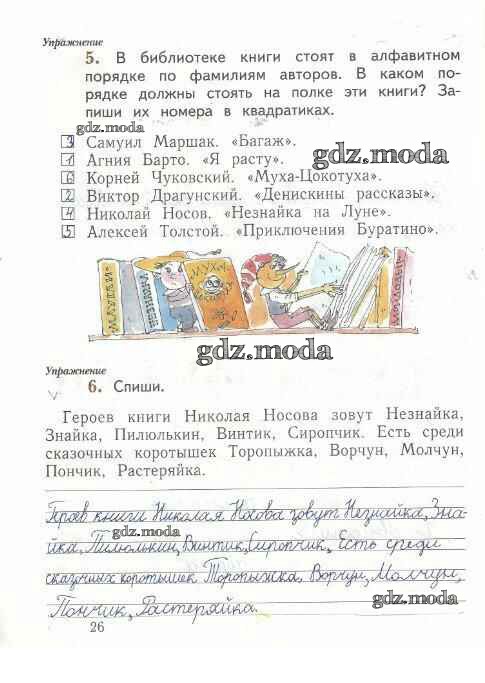 Упражнение
5. В библиотеке книги стоят в алфавитном
порядке по фамилиям авторов. В каком по-
рядке должны стоять на полке эти книги? За-
пиши их номера в квадратиках.
gdz.moda
3 Самуил Маршак. «Багаж».
1 Агния Барто. «Я расту».
gdz.moda
6 Корней Чуковский. «Муха-Цокотуха».
2 Виктор Драгунский. «Денискины рассказы».
4 Николай Носов. «Незнайка на Луне».
5 Алексей Толстой. «Приключения Буратино».
МУХА
gdz.moda
Упражнение
6. Спиши.
Героев книги Николая Носова зовут Незнайка,
Знайка, Пилюлькин, Винтик, Сиропчик. Есть среди
сказочных коротышек Торопыжка, Ворчун, Молчун,
Пончик, Растеряйка.
Героев книги Николая Носова зовут Незнайка, Зна-
gdz.moda
йка, Пилюлькин, Винтик, Сиропчик. Есть среди
сказочных коротышек Торопыжка, Ворчун, Молчун,
gdz.moda
Пончик, Растеряйка.
26